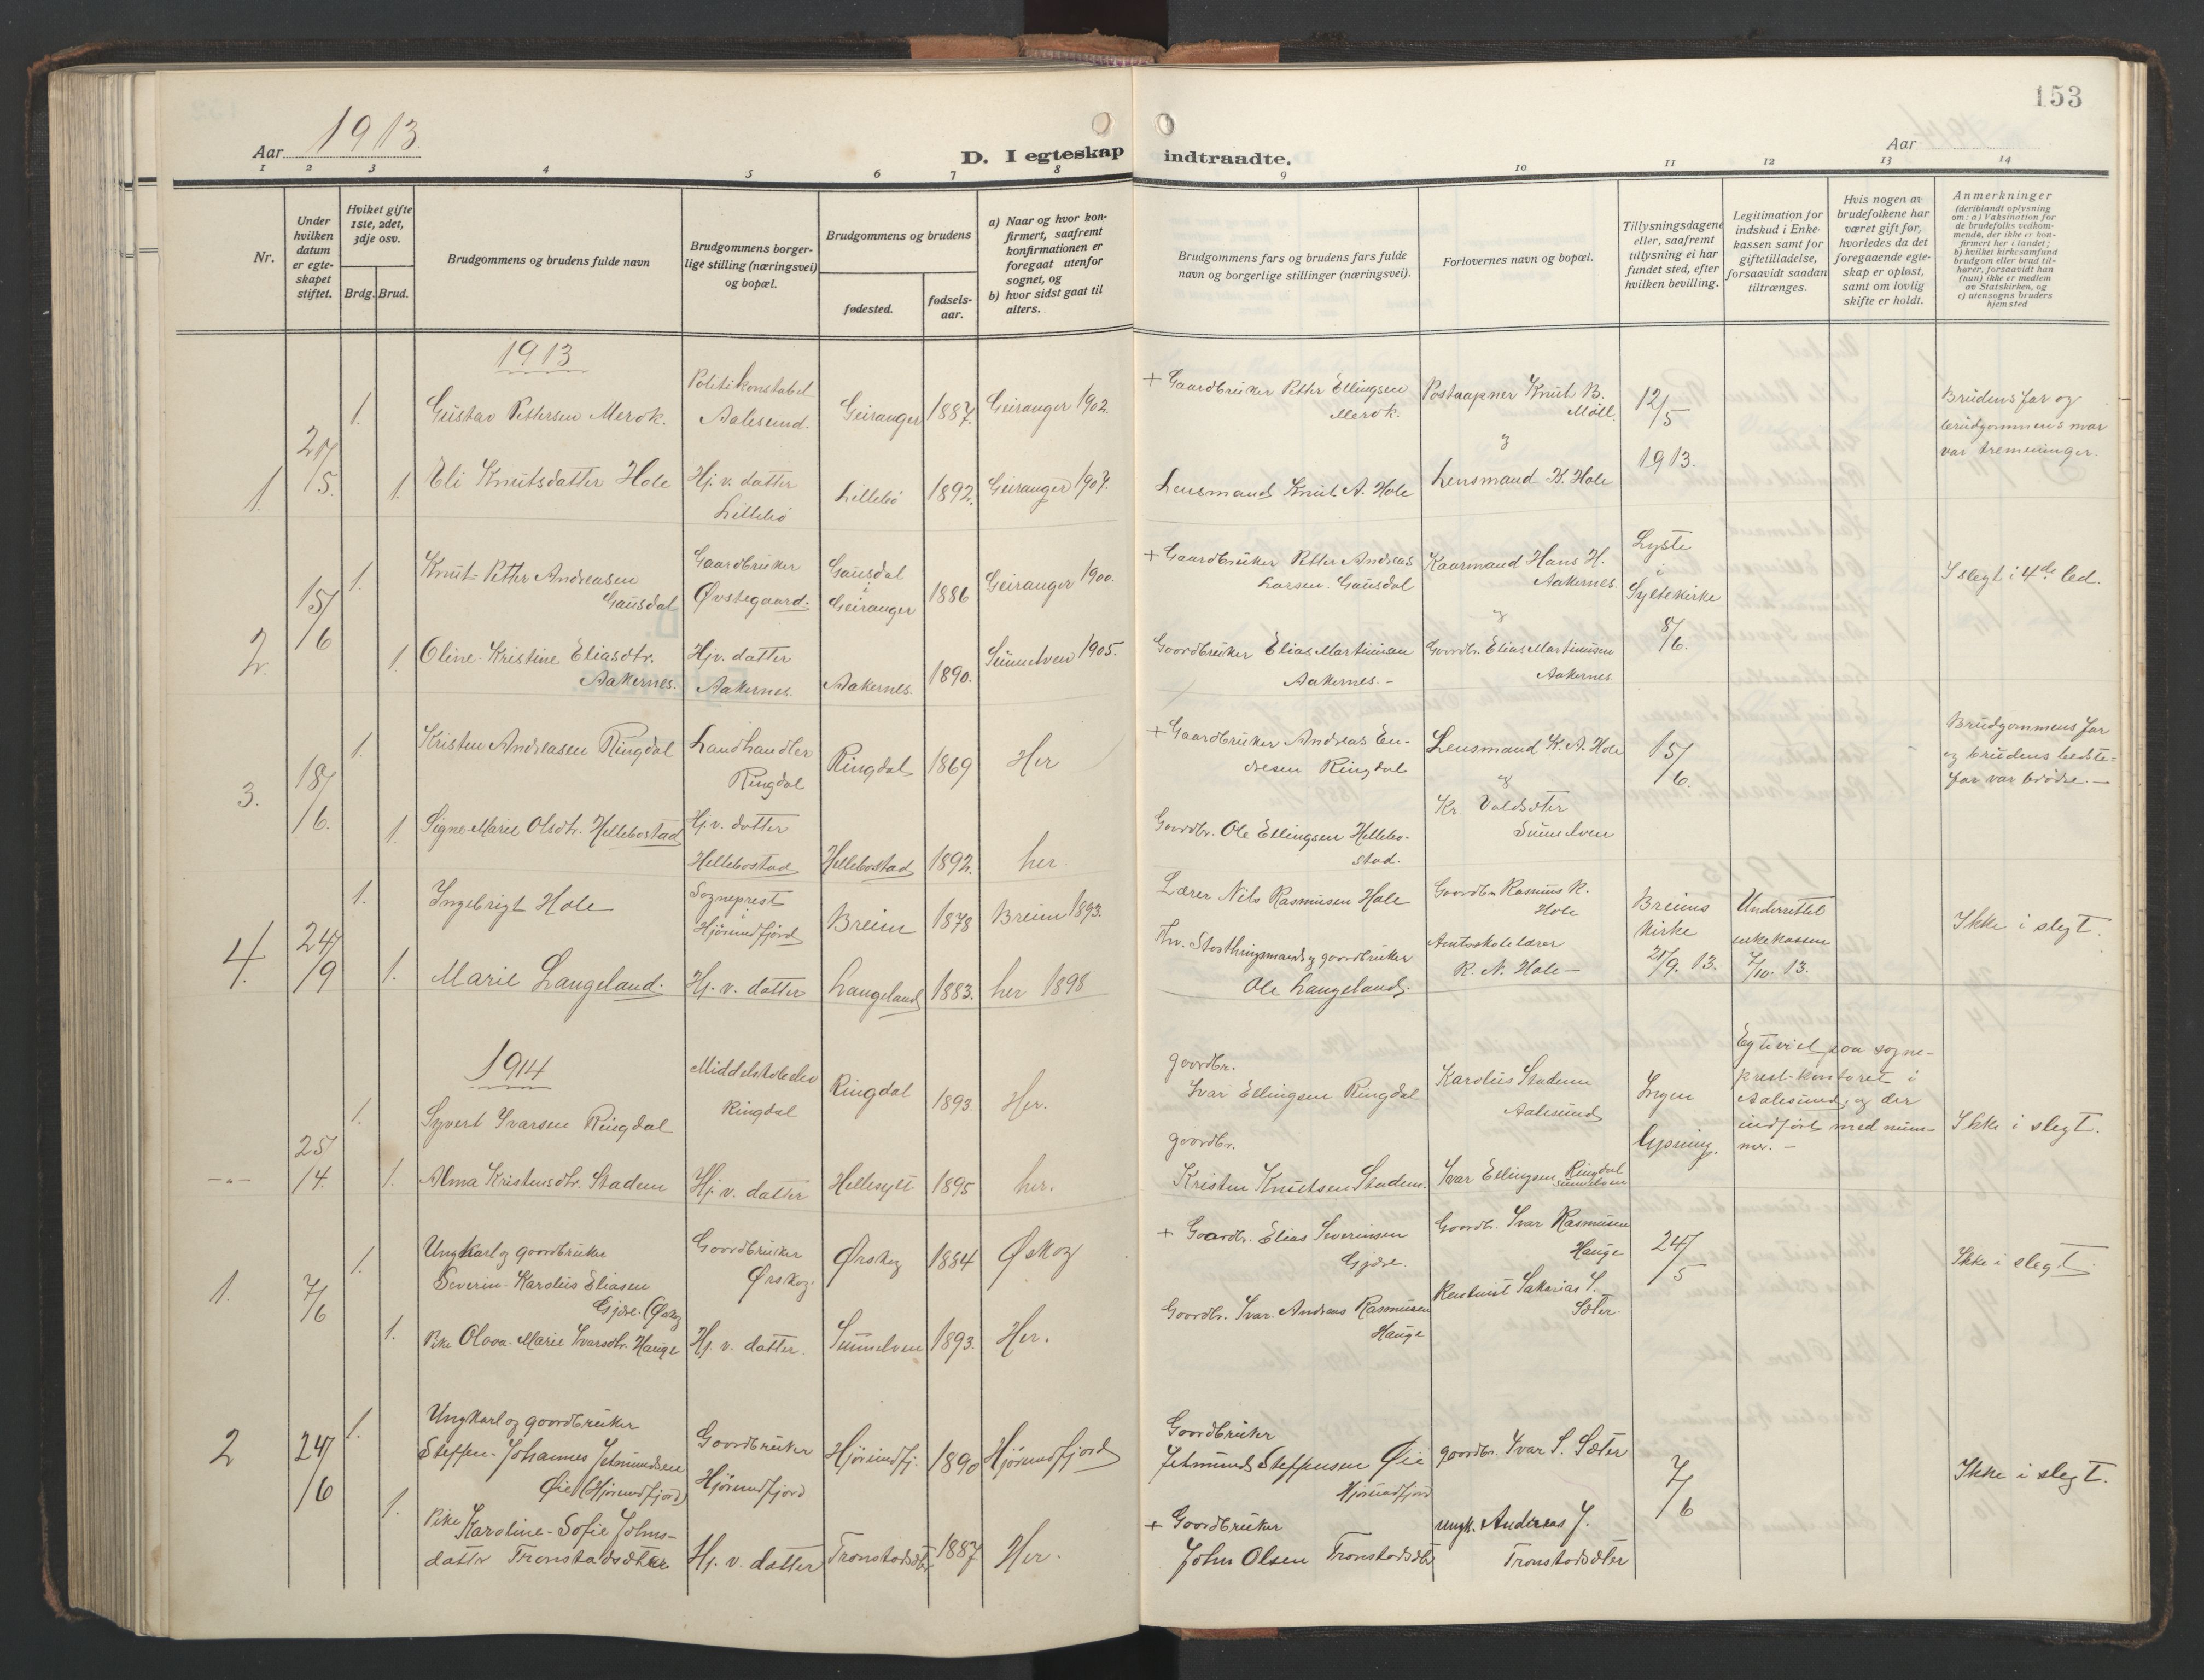 153
Aar 1913.
D. I egteskap indtraadte.
Aar
1 2 3 4 5 6 7 8 9 10 11 12 13 14
Nr.
Under hvilken datum er egteskapet stiftet.
Hvilket gifte 1ste, 2det, 3dje osv.
Brdg. Brud.
Brudgommens og brudens fulde navn
Brudgommens borgerlige stilling (næringsvei) og bopæl.
Brudgommens og brudens
fødested.
fødselsaar.
a) Naar og hvor konfirmert, saafremt konfirmationen er foregaat utenfor sognet, og
b) hvor sidst gaat til alters.
Brudgommens fars og brudens fars fulde navn og borgerlige stillinger (næringsvei).
Forlovernes navn og bopæl.
Tillysningsdagene eller, saafremt tillysning ei har fundet sted, efter hvilken bevilling.
Legitimation for indskud i Enkekassen samt for giftetilladelse, forsaavidt saadan tiltrænges.
Hvis nogen av brudefolkene har været gift før, hvorledes da det foregaaende egteskap er opløst, samt om lovlig skifte er holdt.
Anmerkninger
(deriblandt oplysning om: a) Vaksination for de brudefolks vedkommende, der ikke er konfirmert her i landet;
b) hvilket kirkesamfund brudgom eller brud tilhører, forsaavidt han (hun) ikke er medlem av Statskirken, og
c) utensogns bruders hjemsted
1913
1. 27/5. 1. Gustav Pettersen Merok. Politikonstabel Aalesund. Geiranger 1887. Geiranger 1902. + Gaardbruker Petter Ellingsen Merok. Postaapner Knut B. Möll. 12/5 1913. Brudens far og brudgommens mor var tremeninger.
1. Eli Knutsdatter Hole Hj. v. datter Lillebö Lillebö 1892. Geiranger 1907. Lensmand Knut A. Hole og Lensmand K. Hole
2. 15/6 1. Knut-Petter Andreasen Gausdal Gaardbruker Øvstegaard. Gausdal i Geiranger 1886 Geiranger 1900. + Gaardbruker Petter Andreas Larsen. Gausdal Kaarmand Hans H. Aakernes. Lyste i Syltekirke 8/6. I slegt i 4de led.
1. Oline-Kristine Eliasdtr. Aakernes. Hjv. datter Aakernes. Aakernes. 1890. Sunnelven 1905. Goordbruker Elias Martinusen Aakernes.- og Goordbr. Elias Martinusen Aakernes
3. 18/6. 1. Kristen Andreasen Ringdal Landhandler Ringdal Ringdal 1869 Her + Gaardbruker Andreas Endresen Ringdal Lensmand K. A. Hole 15/6. Brudgommens far og brudens bedstefar var brödre.-
1. Signe Marie Olsdtr. Hellebostad Hj. v. datter Hellebostad Hellebostad 1892. her. Goordbr. Ole Ellingsen Hellebostad. og Kr. Voldsæter Sunnelven
4. 24/9 1. Ingebrigt Hole Sogneprest i Hjörundfjord Breim 1878 Breim 1893. Lærer Nils Rasmusen Hole Goordbr. Rasmus R. Hole Breims kirke 21/9. 13. Underrettet enkekassen 7/10. 13. Ikke i slegt.
1. Marie Langeland. Hj. v. datter Langeland 1883. her 1898 Fhv. Storthingsmand og goordbruker Ole Langeland. Amtsskolelærer R. N. Hole-
1914
-"- 25/4. 1. Syvert Ivarsen Ringdal Middelskoleelev Ringdal Ringdal 1893. Her. goordbr. Ivar Ellingsen Ringdal Karolus Stadem Aalesund Ingen lysning. Egteviet paa sogneprest-kontoret i Aalesund, og der indfört med nummer.- Ikke i slegt.
1. Alma Kristensdtr. Stadem Hj. v. datter Hellesylt 1895 her. goordbr. Kristen Knutsen Stadem. Ivar Ellingsen Ringdal Sunnelven
1. 7/6 1. Ungkarl og goordbruker Severin-Karolus Eliasen Gjære. (Øskog Goordbruker Ørskog. Ørskog 1884 Øskog + Goordbr. Elias Severinsen Gjære. Goordbr. Ivar Rasmusen Hauge 24/5 Ikke i slegt.
1. Pike Olava-Marie Ivarsdtr. Hauge Hj. v. datter. Sunnelven 1893. Her. Goordbr. Ivar. Andreas Rasmusen Hauge Kentmit Sakarias S. Sæter.
2 24/6 1. Ungkarl og goordbruker Steffen-Johannes Jetmundsen Øie (Hjörundfjord) Goordbruker Hjörundfjord Hjörundfj. 1890 Hjörundfjord Goordbruker Jetmund Steffensen Øie Hjörundfjord goordbr. Ivar S. Sæter 7/6 Ikke i slegt.
1. Pike Karoline-Sofie Johnsdatter Tronstadsæter. Hj. v. datter Tronstadsætr. 1887 Her. + Goordbruker John Olsen Tronstadsætr ungk. Andreas J. Tronstadsæter